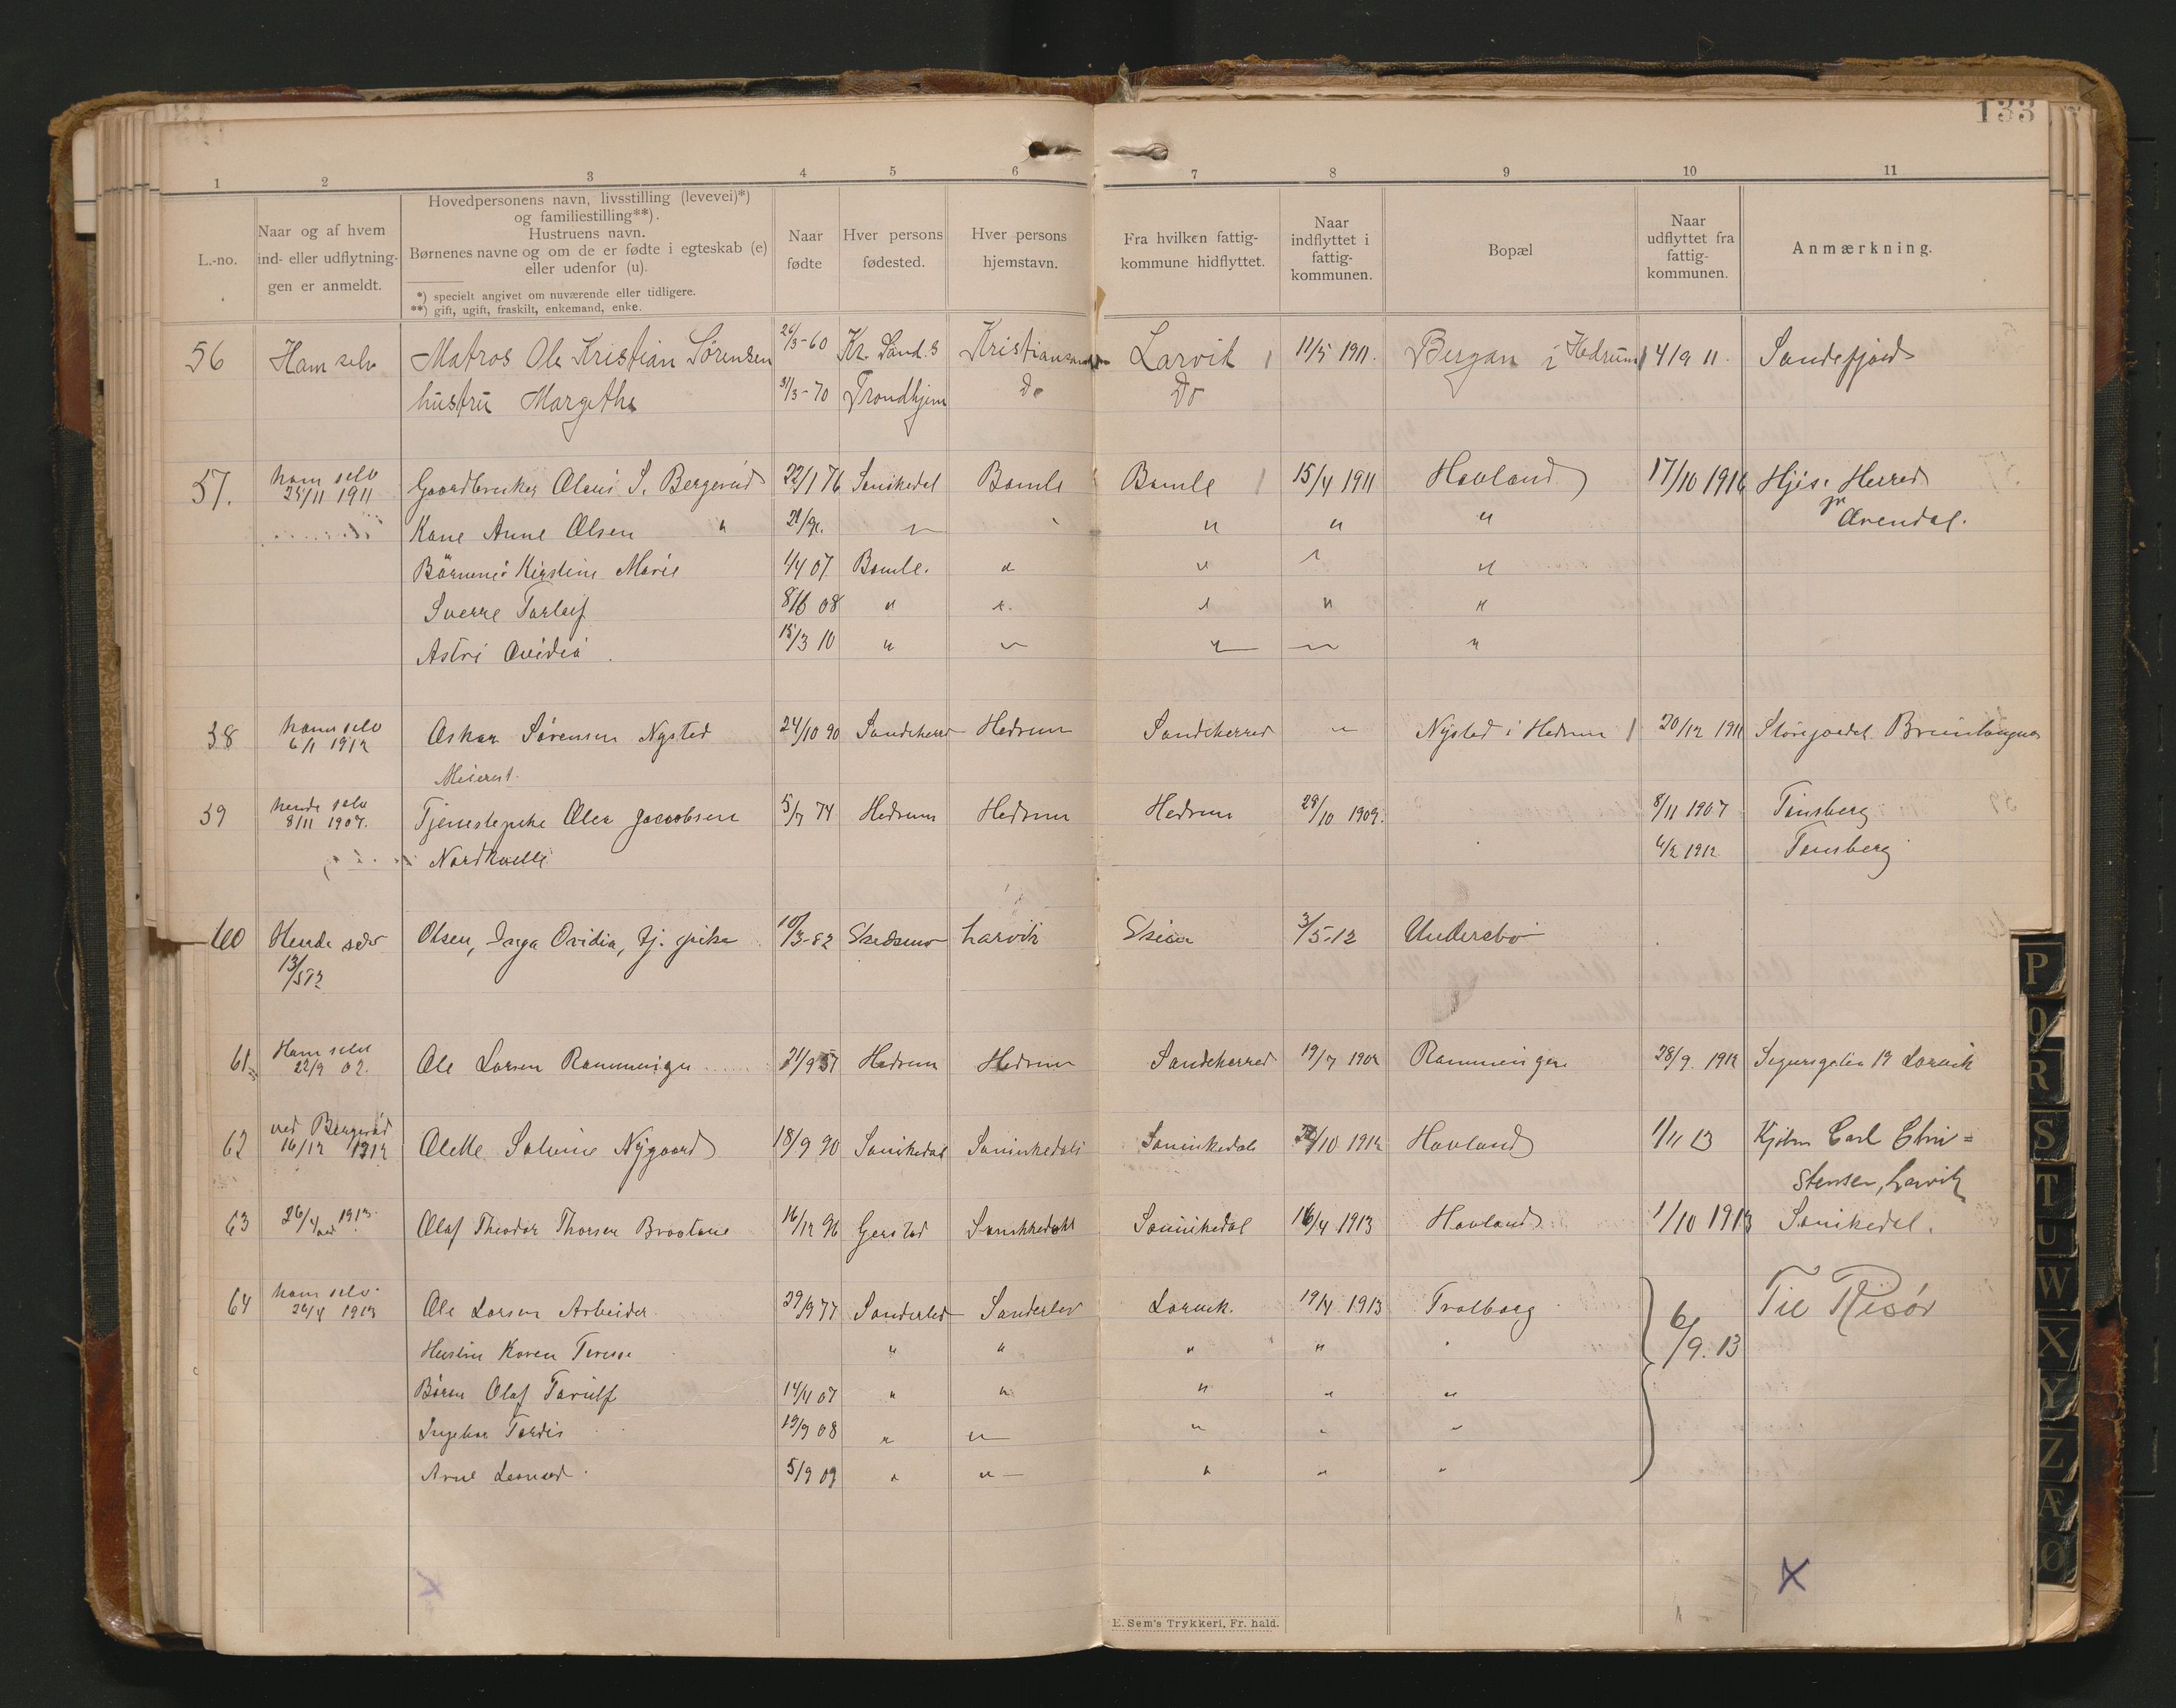 133
1 2 3 4 5 6 7 8 9 10 11
L.-no.
Naar og af hvem
ind- eller udflytnin-
gen er anmeldt.
Hovedpersonens navn, livsstilling (levevei)*)
og familiestilling**).
Hustruens navn.
Børnenes navne og om de er fødte i egteskab (e)
eller udenfor (u).
*) specielt angivet om nuværende eller tidligere.
**) gift, ugift, fraskilt, enkemand, enke.
Naar
fødte
Hver persons
fødested.
Hver persons
hjemstavn.
Fra hvilken fattig-
kommune hidflyttet.
Naar
indflyttet i
fattig-
kommunen.
Bopæl
Naar
udflyttet fra
fattig-
kommunen.
Anmærkning.
56 Ham selv Matros Ole Kristian Sørensen 26/3-60 Kr. Sand. S Kristiansand Larvik 11/5 1911. Bergan i Hedrum 14/9 11. Sandefjord
hustru Margethe 31/3-70 Trondhjem Do Do
57. ham selv
25/11 1911 Gaardbruker Olaus S. Bergerud 22/1 76 Sanikedal Bamle Bamle 15/4 1911 Havland 17/10 1916 Hjis. Herred
pr Arendal.
Kone Anne Olsen " " " "
Børnene: Kirstine Marie 1/4 07. Bamle. " " " "
Sverre Torleif 8/6 08 " " " " "
Astri Ovidia 15/3 10 " " " " "
38 ham selv
6/1 1912 Oskar Sørensen Nysted 24/10 90 Sandeherred Hedrum Sandeherred " Nysted i Hedrum 20/12 1911 Brunlangnes
Meierist.
39 hende selv
8/11 1907. Tjenestepike Olea Jacobsen 5/7 74 Hedrum Hedrum Hedrum 29/10 1909. 8/11 1907 Tønsberg
Nordkvelle 6/2 1912 Tønsberg
60 Hende selv
13/5 12 Olsen, Inga Ovidia, tj. pike 10/3-82 Skedsmo Larvik Skien 3/5-12 Undersbo
61 Ham selv
22/9 02. Ole Larsen Rammingen 21/9 57 Hedrum Hedrum Sandeherred 19/7 1902 Rammingen 28/9. 1912 19 Larvik
62 ved Bergerød
16/12 1912 Olette Salvine Nygaard 18/9 90 Sanikedal Sannikedals Sannikedals /10 1912 Havland 1/11 13 Kjøbm Carl Chri=
stensen, Larvik
63 26/4 1913. Olaf Theodor Thorsen Braatane 16/12 96 Gerstad Sannikedal Sannikedal 16/4 1913 Havland 1/10 1913 Sanikedal.
64 ham selv.
26/4 1913 Ole Larsen Arbeider 29/9 77 Sønderled Sønderlev Larvik. 19/4 1913 Trolborg 6/9. 13 Til Risør
Hustru Karen Terese " " " "
Børn Olaf Torulf 14/11 07 " " " " "
Ingebor Tordis 19/9 08 " " " " "
Arne Leonard 5/9 09 " " " " "
E. Sem's Trykkeri, Fr. hald.
P
Q
R
S
T
U
W
X
Y
Z
Æ
Ø